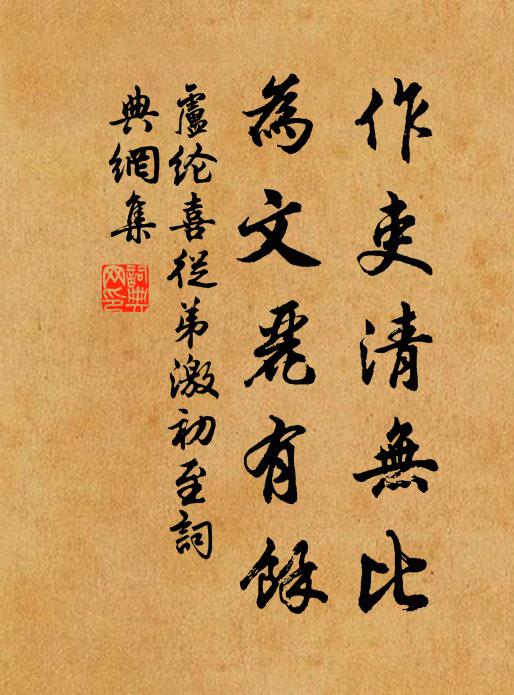 作吏清無比
為文麗有餘
盧纶喜從弟激初至詞
典網集
詞典網印